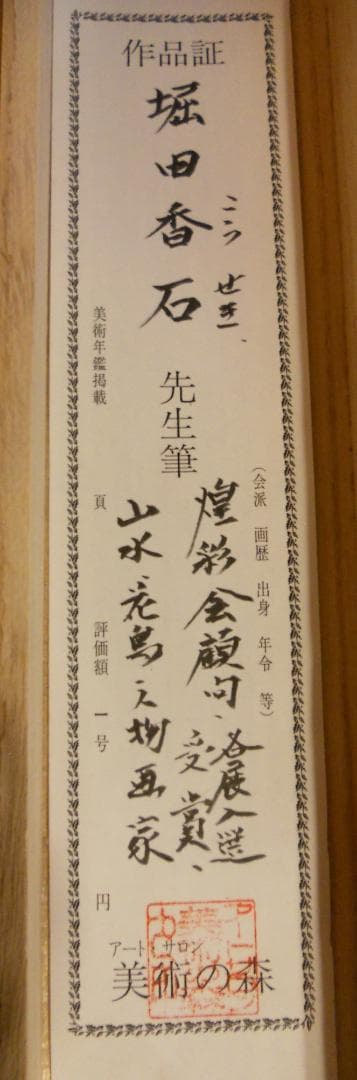 作品証
堀田香石
こうせき、
先生筆
(会派 画歴 出身 年令 等)
煌彩会顧問、各展入選
受賞、
山水、花鳥、人物画家
美術年鑑掲載 頁 評価額 一号 円
アート・サロン
美術の森